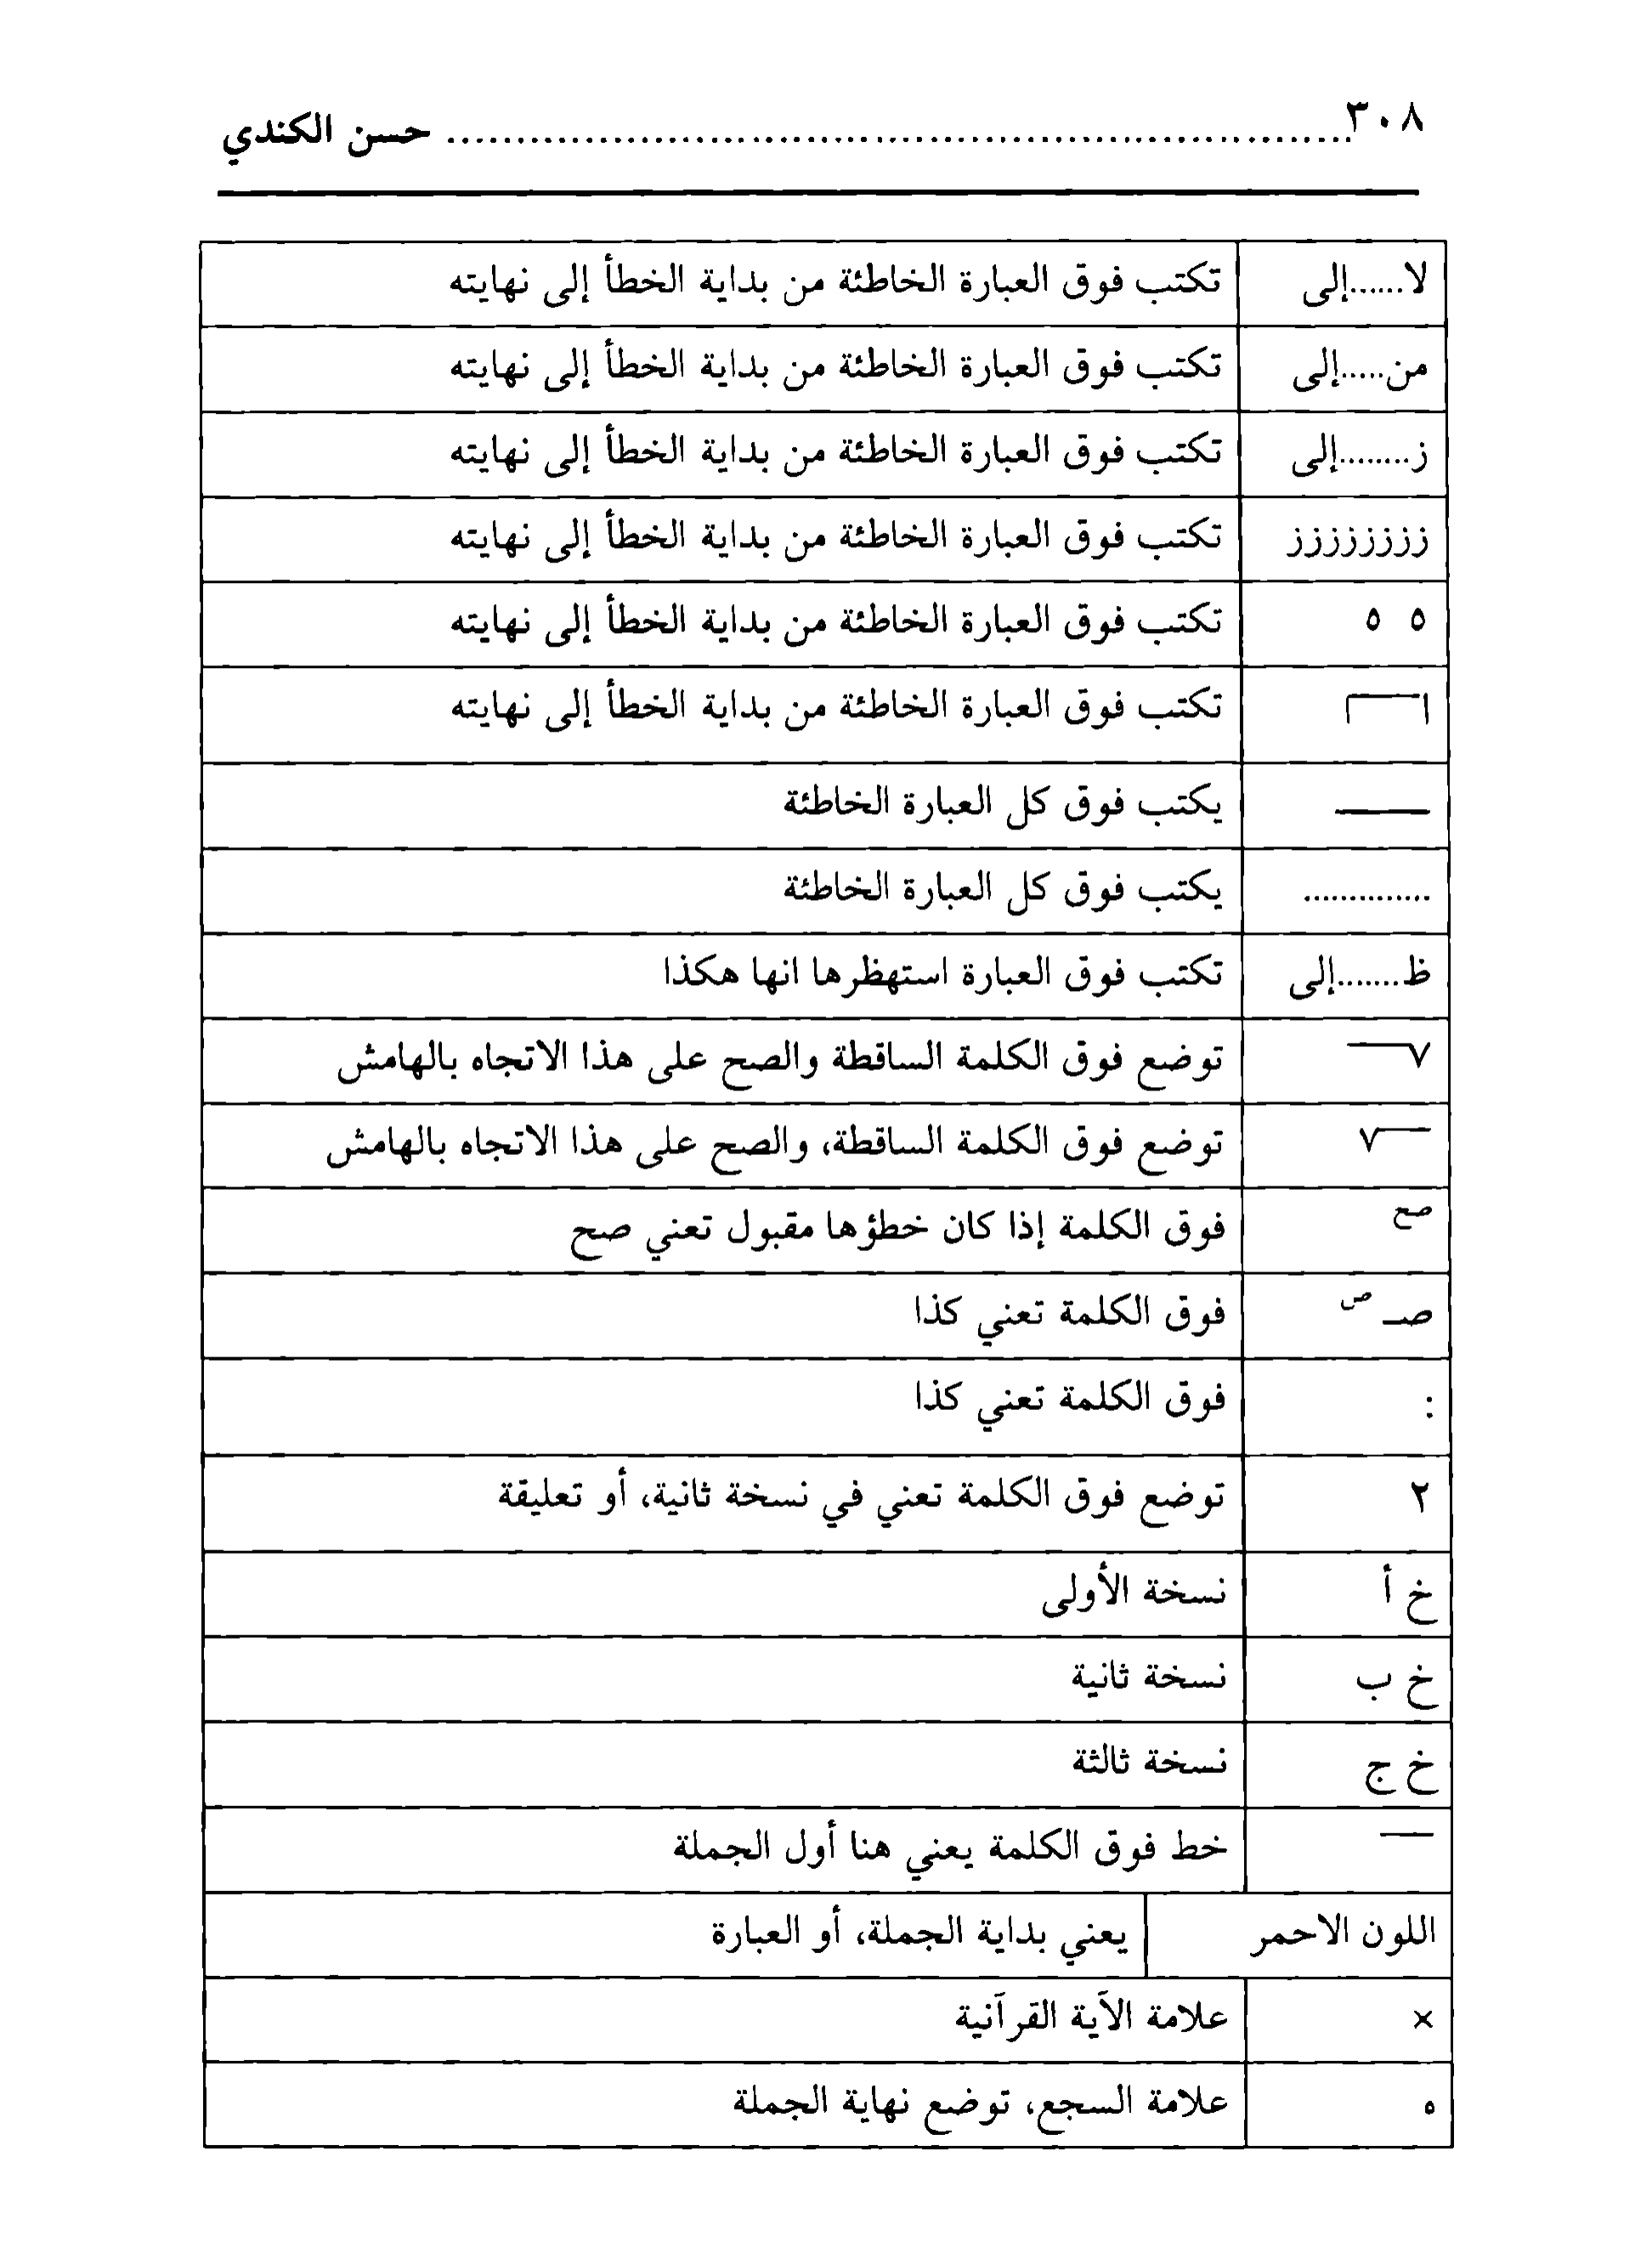 ٣٠٨ ........................................................ حسن الكندي
لا......إلى تكتب فوق العبارة الخاطئة من بداية الخطأ إلى نهايته
من.....إلى تكتب فوق العبارة الخاطئة من بداية الخطأ إلى نهايته
ز........إلى تكتب فوق العبارة الخاطئة من بداية الخطأ إلى نهايته
زززززززز تكتب فوق العبارة الخاطئة من بداية الخطأ إلى نهايته
٥ ٥ تكتب فوق العبارة الخاطئة من بداية الخطأ إلى نهايته
تكتب فوق العبارة الخاطئة من بداية الخطأ إلى نهايته
يكتب فوق كل العبارة الخاطئة
.............. يكتب فوق كل العبارة الخاطئة
ظ.......إلى تكتب فوق العبارة استهظرها انها هكذا
٧‾‾ توضع فوق الكلمة الساقطة والصح على هذا الاتجاه بالهامش
‾‾٧ توضع فوق الكلمة الساقطة، والصح على هذا الاتجاه بالهامش
صح فوق الكلمة إذا كان خطؤها مقبول تعني صح
صـ ص فوق الكلمة تعني كذا
: فوق الكلمة تعني كذا
٢ توضع فوق الكلمة تعني في نسخة ثانية، أو تعليقة
خ أ نسخة الأولى
خ ب نسخة ثانية
خ ج نسخة ثالثة
‾‾ خط فوق الكلمة يعني هنا أول الجملة
اللون الاحمر يعني بداية الجملة، أو العبارة
× علامة الآية القرآنية
ه علامة السجع، توضع نهاية الجملة